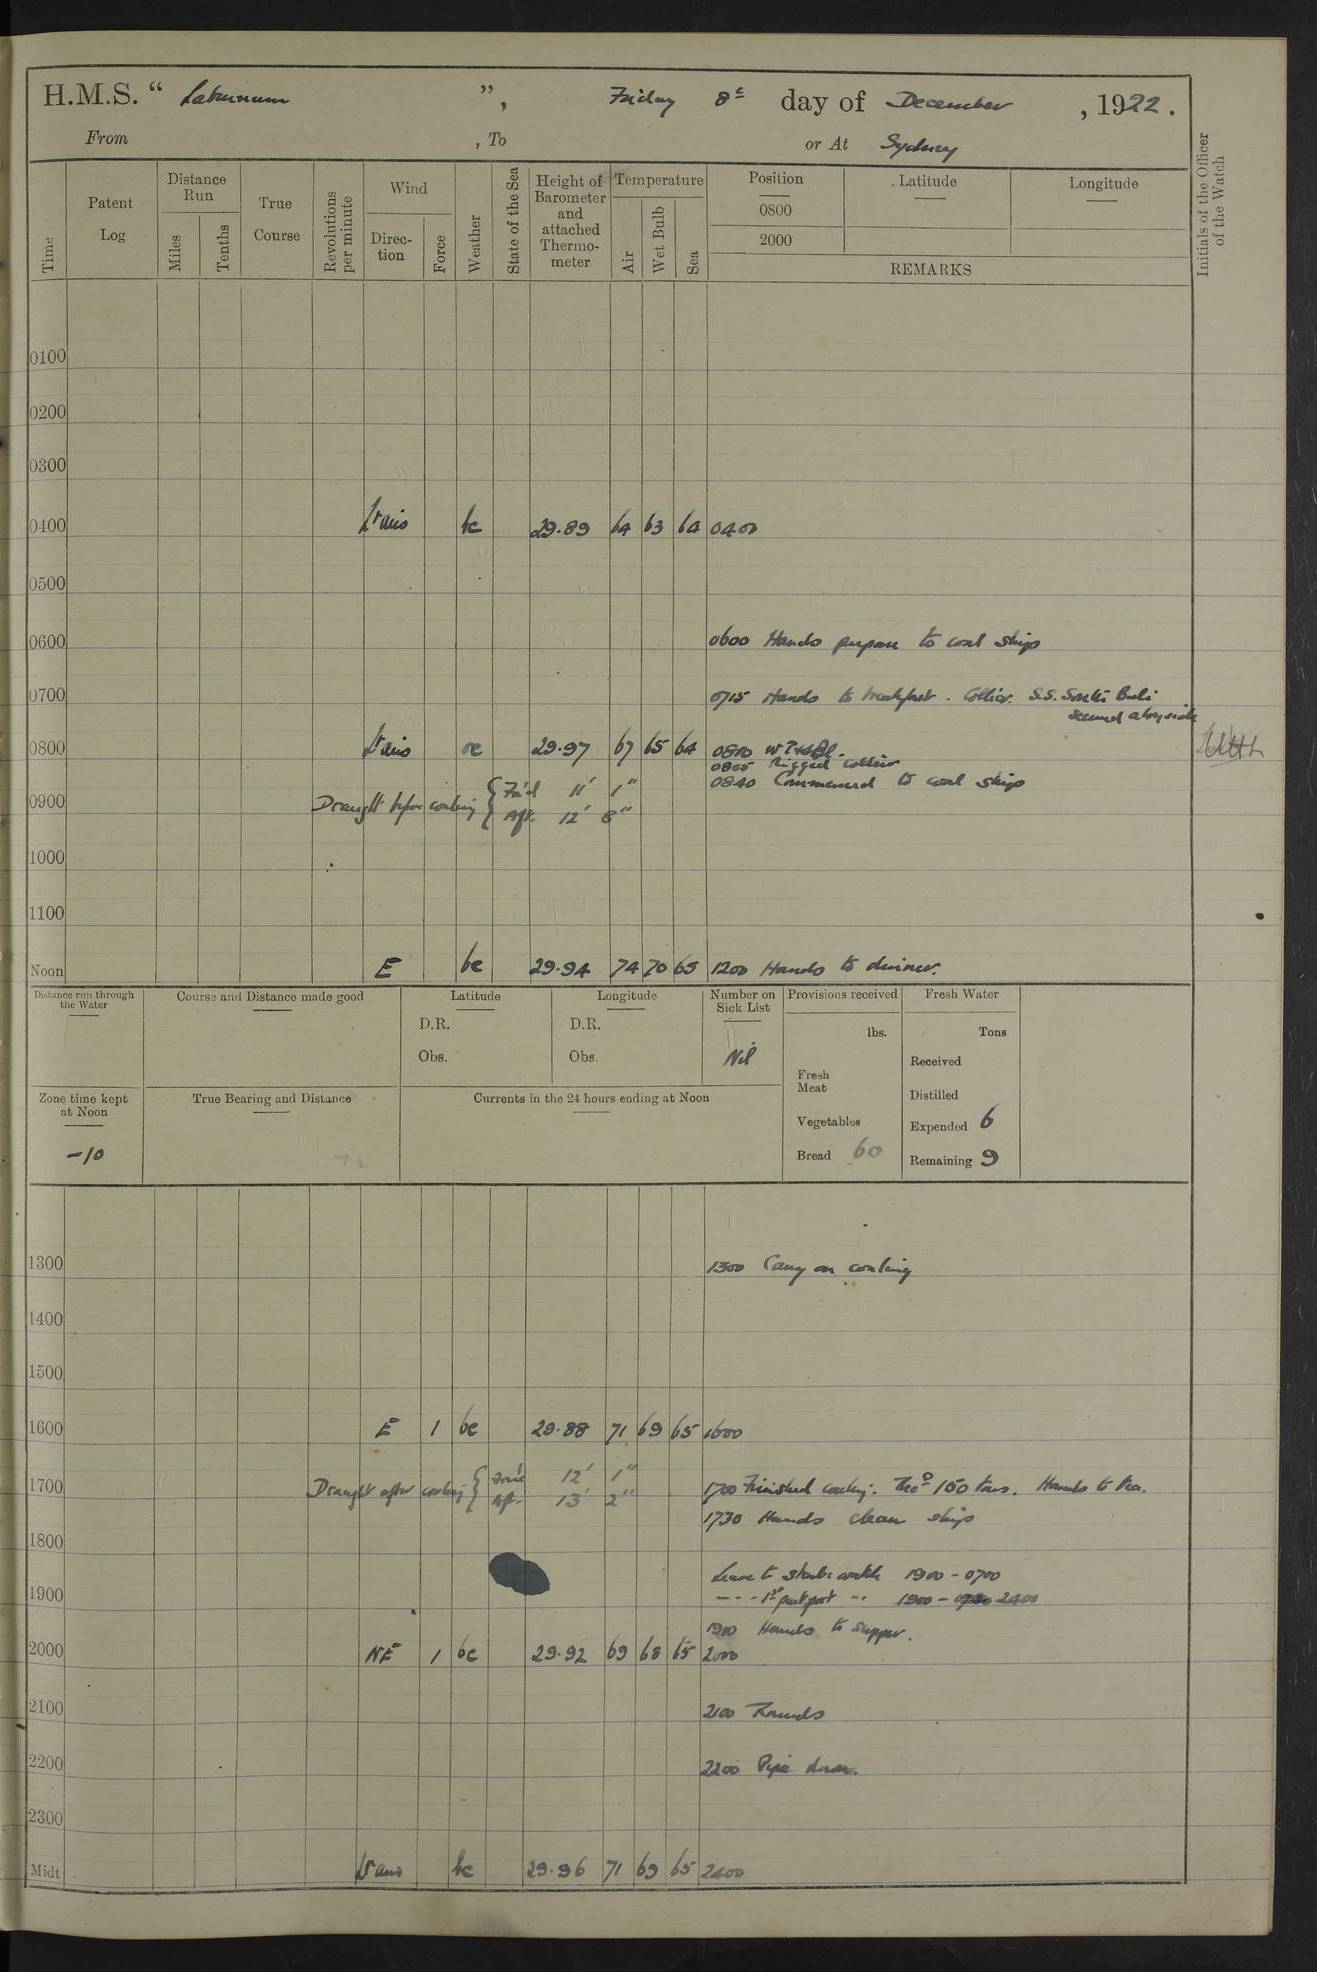 H.M.S. “ Laburnum ”, Friday 8th day of December , 1922.
From , To or At Sydney
Time
Patent Log
Distance Run
Miles
Tenths
True Course
Revolutions per minute
Wind
Direc-tion
Force
Weather
State of the Sea
Height of Barometer and attached Thermo-meter
Temperature
Air
Wet Bulb
Sea
Position
0800
2000
Latitude
Longitude
REMARKS
Initials of the Officer of the Watch
0100
0200
0300
0400 Lt airs bc 29.89 64 63 64 0400
0500
0600 0600 Hands prepare to coal ship
0700 0715 Hands to breakfast. Collier S.S. South Buli
secured alongside
0800 Lt airs oc 29.97 67 65 64 0800
0805 Rigged collier
0840 Commenced to coal ship
0900 Draught before coaling { For'd 11' 1"
Aft. 12' 8"
1000
1100
Noon E bc 29.94 74 70 65 1200 Hands to dinner.
Distance run through the Water
Course and Distance made good
Latitude
D.R.
Obs.
Longitude
D.R.
Obs.
Number on Sick List
Nil
Provisions received
lbs.
Fresh Meat
Vegetables
Bread 60
Fresh Water
Tons
Received
Distilled
Expended 6
Remaining 9
Zone time kept at Noon
-10
True Bearing and Distance
Currents in the 24 hours ending at Noon
1300 1300 Carry on coaling
1400
1500
1600 E 1 bc 29.88 71 69 65 1600
1700 Draught after coaling { For'd 12' 1"
Aft. 13' 2"
1700 Finished coaling. 150 tons. Hands to tea.
1730 Hands clean ship
1800
Leave to starb: watch 1900 - 0700
- - - 1st part port " 1900 - 2400
1900
1900 Hands to supper.
2000 NE 1 bc 29.92 69 68 65 2000
2100 2100 Rounds
2200 2200 Pipe down.
2300
Midt Lt airs bc 29.96 71 69 65 2400